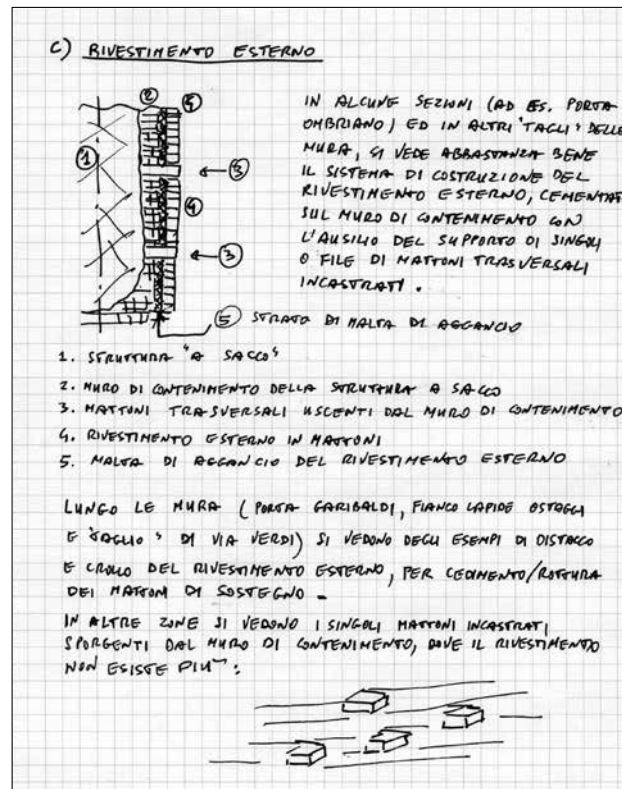 C) RIVESTIMENTO ESTERNO
2 5
1
3
4
3
IN ALCUNE SEZIONI (AD ES. PORTA
OMBRIANO) ED IN ALTRI "TAGLI" DELLE
MURA, SI VEDE ABBASTANZA BENE
IL SISTEMA DI COSTRUZIONE DEL
RIVESTIMENTO ESTERNO, CEMENTAT
SUL MURO DI CONTENIMENTO CON
L'AUSILIO DEL SUPPORTO DI SINGOLI
O FILE DI MATTONI TRASVERSALI
INCASTRATI.
5 STRATO DI MALTA DI AGGANCIO
1. STRUTTURA "A SACCO"
2. MURO DI CONTENIMENTO DELLA STRUTTURA A SACCO
3. MATTONI TRASVERSALI USCENTI DAL MURO DI CONTENIMENTO
4. RIVESTIMENTO ESTERNO IN MATTONI
5. MALTA DI AGGANCIO DEL RIVESTIMENTO ESTERNO
LUNGO LE MURA (PORTA GARIBALDI, FIANCO LAPIDE OSTAGGI
E "TAGLIO" DI VIA VERDI) SI VEDONO DEGLI ESEMPI DI DISTACCO
E CROLLO DEL RIVESTIMENTO ESTERNO, PER CEDIMENTO/ROTTURA
DEI MATTONI DI SOSTEGNO -
IN ALTRE ZONE SI VEDONO I SINGOLI MATTONI INCASTRATI
SPORGENTI DAL MURO DI CONTENIMENTO, DOVE IL RIVESTIMENTO
NON ESISTE PIU':